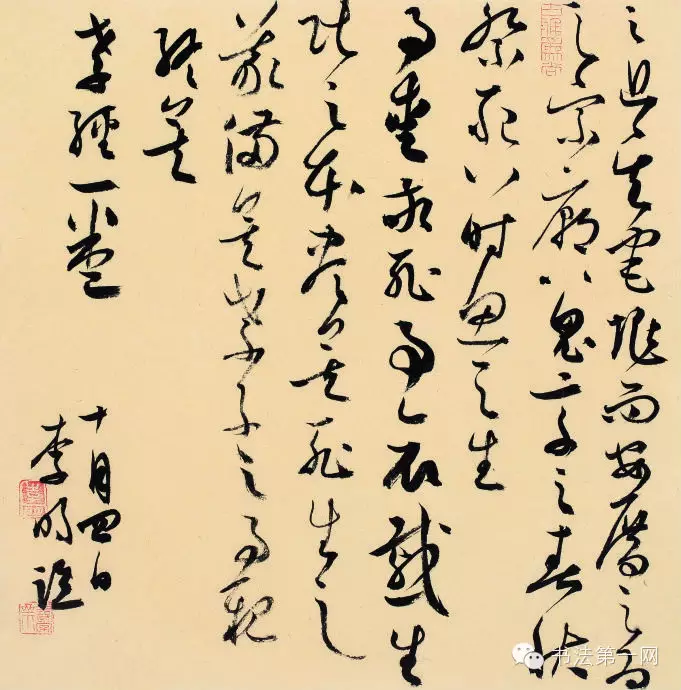 之卜其宅兆而安厝之为
之宗庙以鬼享之春秋
祭祀以时思之生
事爱敬死事哀戚生
民之本尽矣死生之
义备矣孝子之事亲
终矣
孝经一卷
十月四日
李明
书法第一网